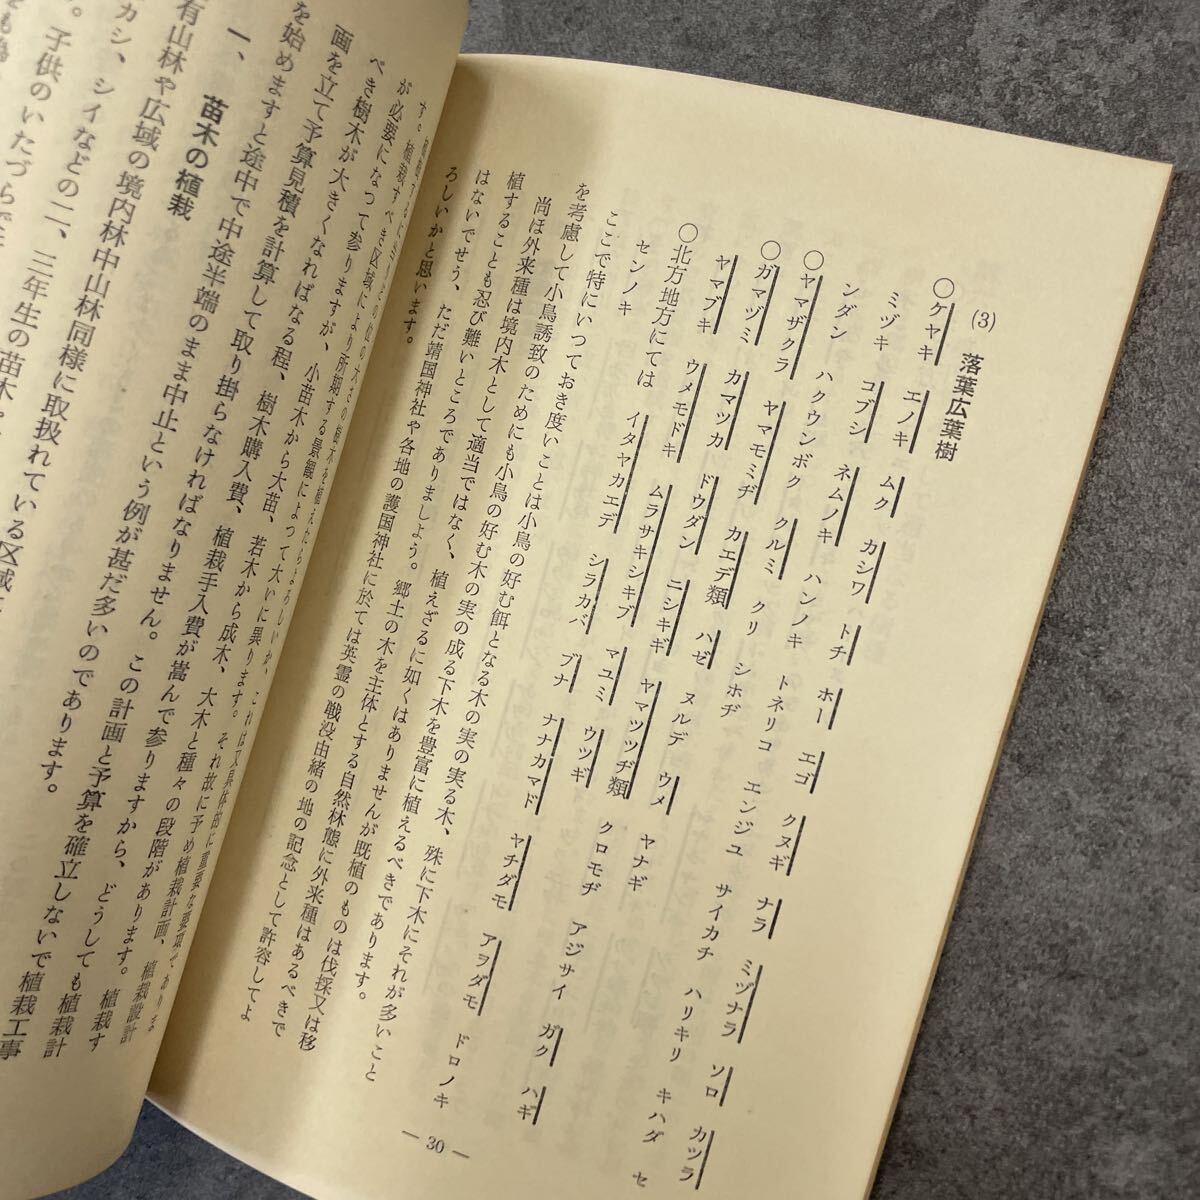 (3) 落葉広葉樹
○ケヤキ エノキ ムク カシワ トチ ホー エゴ クヌギ ナラ ミヅナラ ソロ カツラ
ミヅキ コブシ ネムノキ ハンノキ トネリコ エンジュ サイカチ ハリキリ キハダ セ
ンダン ハクウンボク クルミ クリ シホヂ
○ヤマザクラ ヤマモミヂ カエデ類 ハゼ ヌルデ ウメ ヤナギ
○ガマヅミ カマツカ ドウダン ニシキギ ヤマツツヂ類 クロモヂ アジサイ ガク ハギ
ヤマブキ ウメモドキ ムラサキシキブ マユミ ウツギ
○北方地方にては イタヤカエデ シラカバ ブナ ナナカマド ヤチダモ アヲダモ ドロノキ
センノキ
ここで特にいつておき度いことは小鳥の好む餌となる木の実の実る木、殊に下木にそれが多いこと
を考慮して小鳥誘致のためにも小鳥の好む木の実の成る下木を豊富に植えるべきであります。
尚ほ外来種は境内木として適当ではなく、植えざるに如くはありませんが既植のものは伐採又は移
植することも忍び難いところでありましよう。郷土の木を主体とする自然林態に外来種はあるべきで
はないでせう、ただ靖国神社や各地の護国神社に於ては英霊の戦没由緒の地の記念として許容してよ
ろしいかと思います。
— 30 —
植栽するに当りどの位の大さの樹木を植えたらよろしいか、これは又具体的に重要な要項でありま
す。植栽すべき区域により所期する景観によつて大いに異ります。それ故に予め植栽計画、植栽設計
が必要になつて参りますが、小苗木から大苗、若木から成木、大木と種々の段階があります。植栽す
べき樹木が大きくなればなる程、樹木購入費、植栽手入費が嵩んで参りますから、どうしても植栽計
画を立て予算見積を計算して取り掛らなければなりません。この計画と予算を確立しないで植栽工事
を始めますと途中で中途半端のまま中止という例が甚だ多いのであります。
一、苗木の植栽
有山林や広域の境内林中山林同様に取扱れている区域に
カシ、シイなどの二、三年生の苗木
す。子供のいたづらで